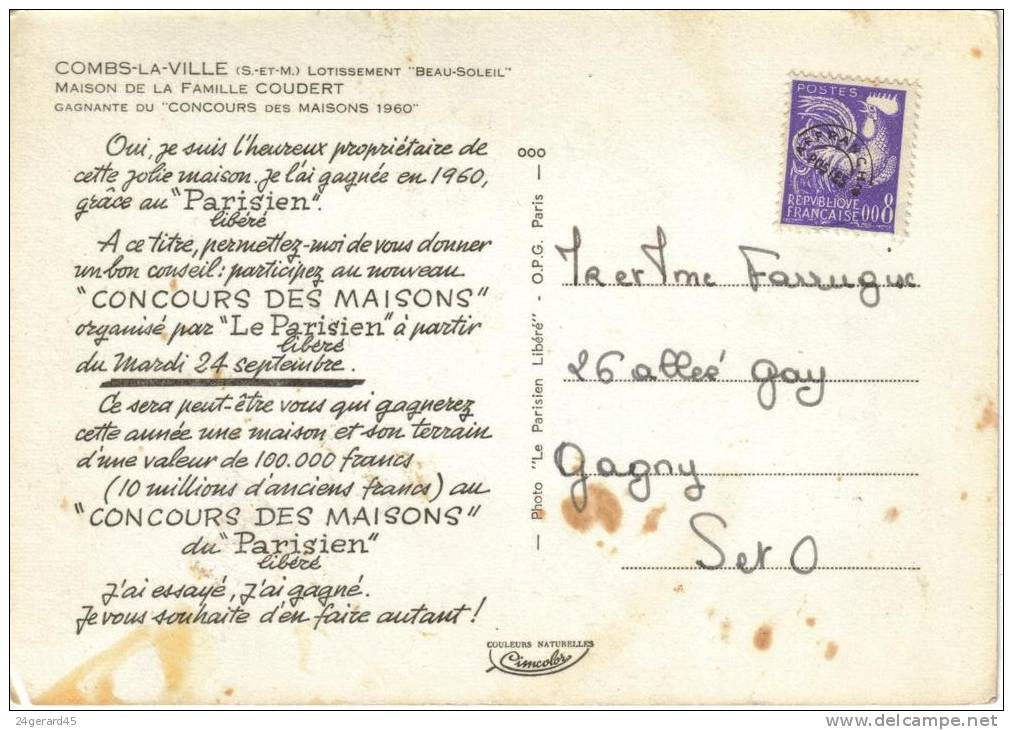 COMBS-LA-VILLE (S.-ET-M.) LOTISSEMENT "BEAU-SOLEIL"
MAISON DE LA FAMILLE COUDERT
GAGNANTE DU "CONCOURS DES MAISONS 1960"
Oui, je suis l'heureux propriétaire de
cette jolie maison. Je l'ai gagnée en 1960,
grâce au "Parisien".
libéré
A ce titre, permettez-moi de vous donner
un bon conseil : participez au nouveau
"CONCOURS DES MAISONS"
organisé par "Le Parisien" à partir
libéré
du Mardi 24 septembre.
Ce sera peut-être vous qui gagnerez
cette année une maison et son terrain
d'une valeur de 100.000 francs
(10 millions d'anciens francs) au
"CONCOURS DES MAISONS"
du "Parisien"
libéré
J'ai essayé, j'ai gagné.
Je vous souhaite d'en faire autant !
000
— Photo "Le Parisien Libéré" - O.P.G. Paris —
COULEURS NATURELLES
Cimcolor
POSTES
AFFRANCHts
POSTES
REPVBLIQVE
FRANÇAISE 008
et Farrugia
26 allée Gay
Gagny
S et O
24gerard45
delcampe.net